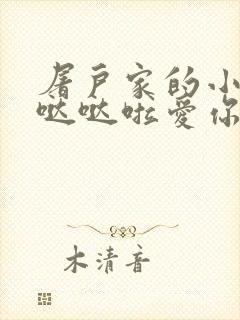 屠户家的小
哒哒啦爱你
木清音